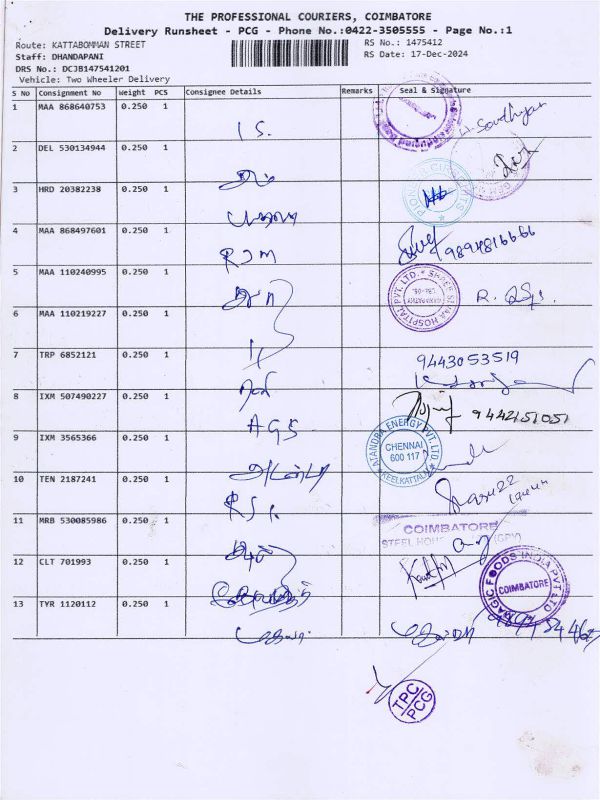 THE PROFESSIONAL COURIERS, COIMBATORE
Delivery Runsheet - PCG - Phone No.:0422-3505555 - Page No.:1
Route: KATTABOMMAN STREET
RS No.: 1475412
Staff: DHANDAPANI
RS Date: 17-Dec-2024
DRS No.: DCJB147541201
Vehicle: Two Wheeler Delivery
S No Consignment No Weight PCS Consignee Details Remarks Seal & Signature
1 MAA 868640753 0.250 1
I S.
2 DEL 530134944 0.250 1
3 HRD 20382238 0.250 1
4 MAA 868497601 0.250 1 9894816666
RJM
5 MAA 110240995 0.250 1
SHREE HOSPITAL PVT. LTD.
6 MAA 110219227 0.250 1
7 TRP 6852121 0.250 1 9443053519
8 IXM 507490227 0.250 1 9442151051
AGS
9 IXM 3565366 0.250 1
ENERGY PVT. LTD
CHENNAI
600 117
KEELKATTALAI
10 TEN 2187241 0.250 1
11 MRB 530085986 0.250 1
COIMBATORE
STEEL
12 CLT 701993 0.250 1
MAGIC FOODS INDIA PVT LTD
COIMBATORE
13 TYR 1120112 0.250 1
TPC
PCG